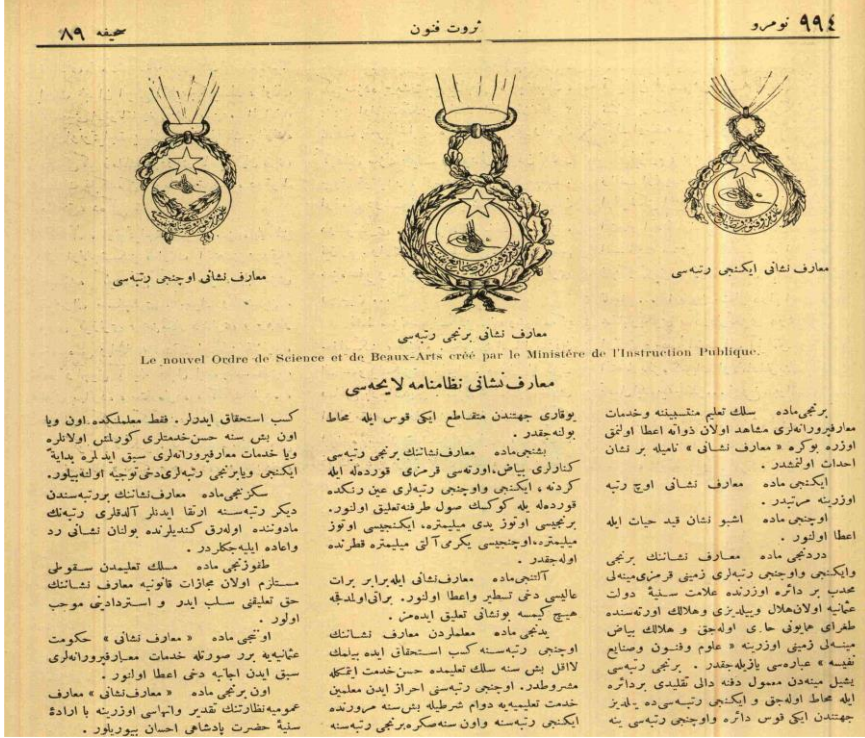 نومرو ٩٩٤
ثروت فنون
صحیفه ٨٩
معارف نشانی ایكنجی رتبه‌سی
معارف نشانی اوچنجی رتبه‌سی
معارف نشانی برنجی رتبه‌سی
Le nouvel Ordre de Science et de Beaux-Arts créé par le Ministère de l'Instruction Publique.
معارف نشانی نظامنامه لایحه‌سی
برنجی ماده سلك تعلیم منتسبیننه وخدمات
معارفپرورانه‌لری مشاهد اولان ذواته اعطا اولنمق
اوزره بوكره « معارف نشانی » نامیله بر نشان
احداث اولنمشدر .
ایكنجی ماده معارف نشانی اوچ رتبه
اوزرینه مرتبدر .
اوچنجی ماده اشبو نشان قید حیات ایله
اعطا اولنور .
دردنجی ماده معارف نشاننك برنجی
وایكنجی واوچنجی رتبه‌لری زمینی قرمزی مینه‌لی
محدب بر دائره اوزرنده علامت سنیهٔ دولت
عثمانیه اولان هلال وییلدیزی وهلالك اورته‌سنده
طغرای همایونی حاوی اوله‌جق و هلالك بیاض
مینه‌لی زمینی اوزرینه « علوم وفنون وصنایع
نفیسه » عباره‌سی یازیله‌جقدر . برنجی رتبه‌سی
یشیل مینه‌دن معمول دفنه دالی تقلیدی بردائره
ایله محاط اوله‌جق و ایكنجی رتبه‌سی‌ده ییلدیز
جهتندن ایكی قوس دائره واوچنجی رتبه‌سی ینه
یوقاری جهتندن متقاطع ایكی قوس ایله محاط
بولنه‌جقدر .
بشنجی ماده معارف نشاننك برنجی رتبه‌سی
كنارلری بیاض، اورته‌سی قرمزی قورده‌له ایله
كردنه ، ایكنجی واوچنجی رتبه‌لری عین رنكده
قورده‌له یله كوكسك صول طرفنه تعلیق اولنور.
برنجیسی اوتوز یدی میلیمتره، ایكنجیسی اوتوز
میلیمتره، اوچنجیسی یكرمی آلتی میلیمتره قطرنده
اوله‌جقدر .
آلتنجی ماده معارف نشانی ایله برابر برات
عالیسی دخی تسطیر واعطا اولنور. براتی اولمدقجه
هیچ كیمسه بونشانی تعلیق ایده‌مز .
یدنجی ماده معلملردن معارف نشاننك
اوچنجی رتبه‌سنه كسب استحقاق ایده بیلمك
لااقل بش سنه سلك تعلیمده حسن خدمت ایتمكله
مشروطدر. اوچنجی رتبه‌سنی احراز ایدن معلمین
خدمت تعلیمیه‌یه دوام شرطیله بش سنه مرورنده
ایكنجی رتبه‌سنه واون سنه صكره برنجی رتبه‌سنه
كسب استحقاق ایدرلر . فقط معلملكده اون ویا
اون بش سنه حسن خدمتلری كورلمش اولانلره
ویا خدمات معارفپرورانه‌لری سبق ایدنلره بدایةً
ایكنجی ویا برنجی رتبه‌لری دخی توجیه اولنه‌بیلور.
سكزنجی ماده معارف نشاننك بررتبه‌سندن
دیكر رتبه‌سنه ارتقا ایدنلر آلدقلری رتبه‌نك
مادوننده اوله‌رق كندیلرنده بولنان نشانی رد
واعاده ایلیه‌جكلردر .
طقوزنجی ماده مسلك تعلیمدن سقوطی
مستلزم اولان مجازات قانونیه معارف نشاننك
حق تعلیقنی سلب ایدر و استردادینی موجب
اولور .
اوننجی ماده « معارف نشانی » حكومت
عثمانیه‌یه برر صورتله خدمات معارفپرورانه‌لری
سبق ایدن اجانبه دخی اعطا اولنور .
اون برنجی ماده « معارف نشانی » معارف
عمومیه نظارتنك تقدیر وانهاسی اوزرینه با ارادهٔ
سنیهٔ حضرت پادشاهی احسان بیوریلور .